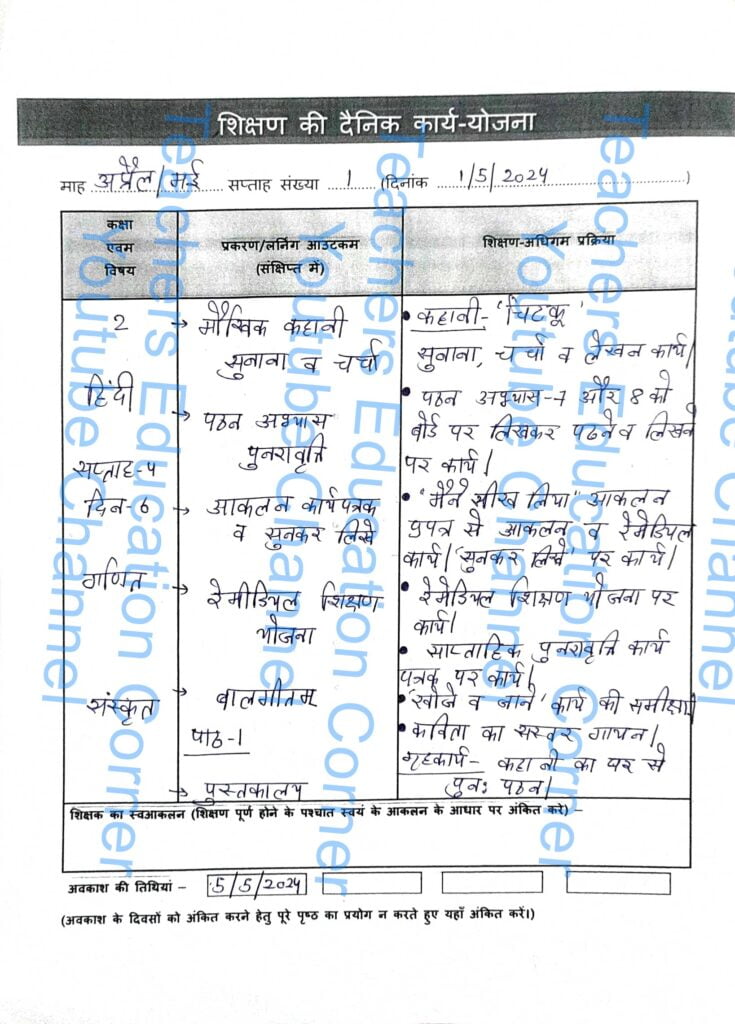 शिक्षण की दैनिक कार्य-योजना
माह अप्रैल/मई सप्ताह संख्या 1 (दिनांक 1/5/2024)
कक्षा
एवम
विषय
प्रकरण/लर्निंग आउटकम
(संक्षिप्त में)
शिक्षण-अधिगम प्रक्रिया
2
हिंदी
सप्ताह-4
दिन-6
गणित
संस्कृत
→ मौखिक कहानी
सुनाना व चर्चा
→ पठन अभ्यास
पुनरावृत्ति
→ आकलन कार्यपत्रक
व सुनकर लिखे
→ रेमीडियल शिक्षण
योजना
→ बालगीतम्
पाठ-1
→ पुस्तकालय
• कहानी- 'चिटकू'
सुनाना, चर्चा व लेखन कार्य।
• पठन अभ्यास-7 और 8 को
बोर्ड पर लिखकर पढने व लिखने
पर कार्य।
• "मैंने सीख लिया" आकलन
प्रपत्र से आकलन व रेमेडियल
कार्य। 'सुनकर लिखे' पर कार्य।
• रेमेडियल शिक्षण योजना पर
कार्य।
• साप्ताहिक पुनरावृत्ति कार्य
पत्रक पर कार्य।
• 'खोजे व जाने' कार्य की समीक्षा
• कविता का सस्वर गायन।
गृहकार्य- कहानी का घर से
पुनः पठन।
शिक्षक का स्वआकलन (शिक्षण पूर्ण होने के पश्चात स्वयं के आकलन के आधार पर अंकित करे) –
अवकाश की तिथियां – 5/5/2024
(अवकाश के दिवसों को अंकित करने हेतु पूरे पृष्ठ का प्रयोग न करते हुए यहाँ अंकित करें।)
Teachers Education Corner
Youtube Channel
Teachers Education Corner
Youtube Channel
Teachers Education Corner
Youtube Channel